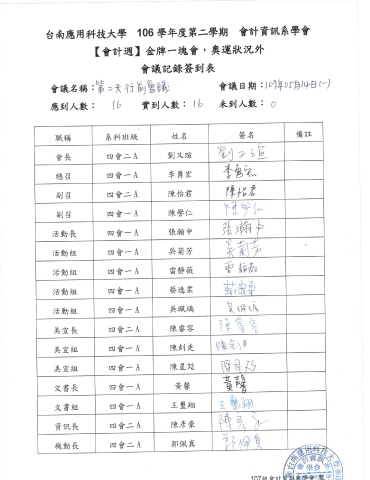 台南應用科技大學 106 學年度第二學期 會計資訊系學會
【會計週】金牌一塊會，奧運狀況外
會議記錄簽到表
會議名稱：第二次行前會議 會議日期：109年05月14日(一)
應到人數： 16 實到人數： 16 未到人數： 0
職稱 系科班級 姓名 簽名 備註
會長 四會二A 劉又瑄 劉又瑄
總召 四會一A 李勇宏 李勇宏
副召 四會二A 陳怡君 陳怡君
副召 四會一A 陳譽仁
活動長 四會一A 張瀚中 張瀚中
活動組 四會一A 吳菊芳 吳菊芳
活動組 四會一A 雷靜薇 雷靜薇
活動組 四會一A 蔡逸柔
活動組 四會一A 吳珮瑀 吳珮瑀
美宣長 四會二A 陳睿容 陳睿容
美宣組 四會一A 陳劍崨
美宣組 四會一A 陳星彣
文書長 四會二A 黃馨 黃馨
文書組 四會一A 王璽翔 王璽翔
資訊長 四會二A 陳彥豪 陳彥豪
機動長 四會二A 郭佩真 郭佩真